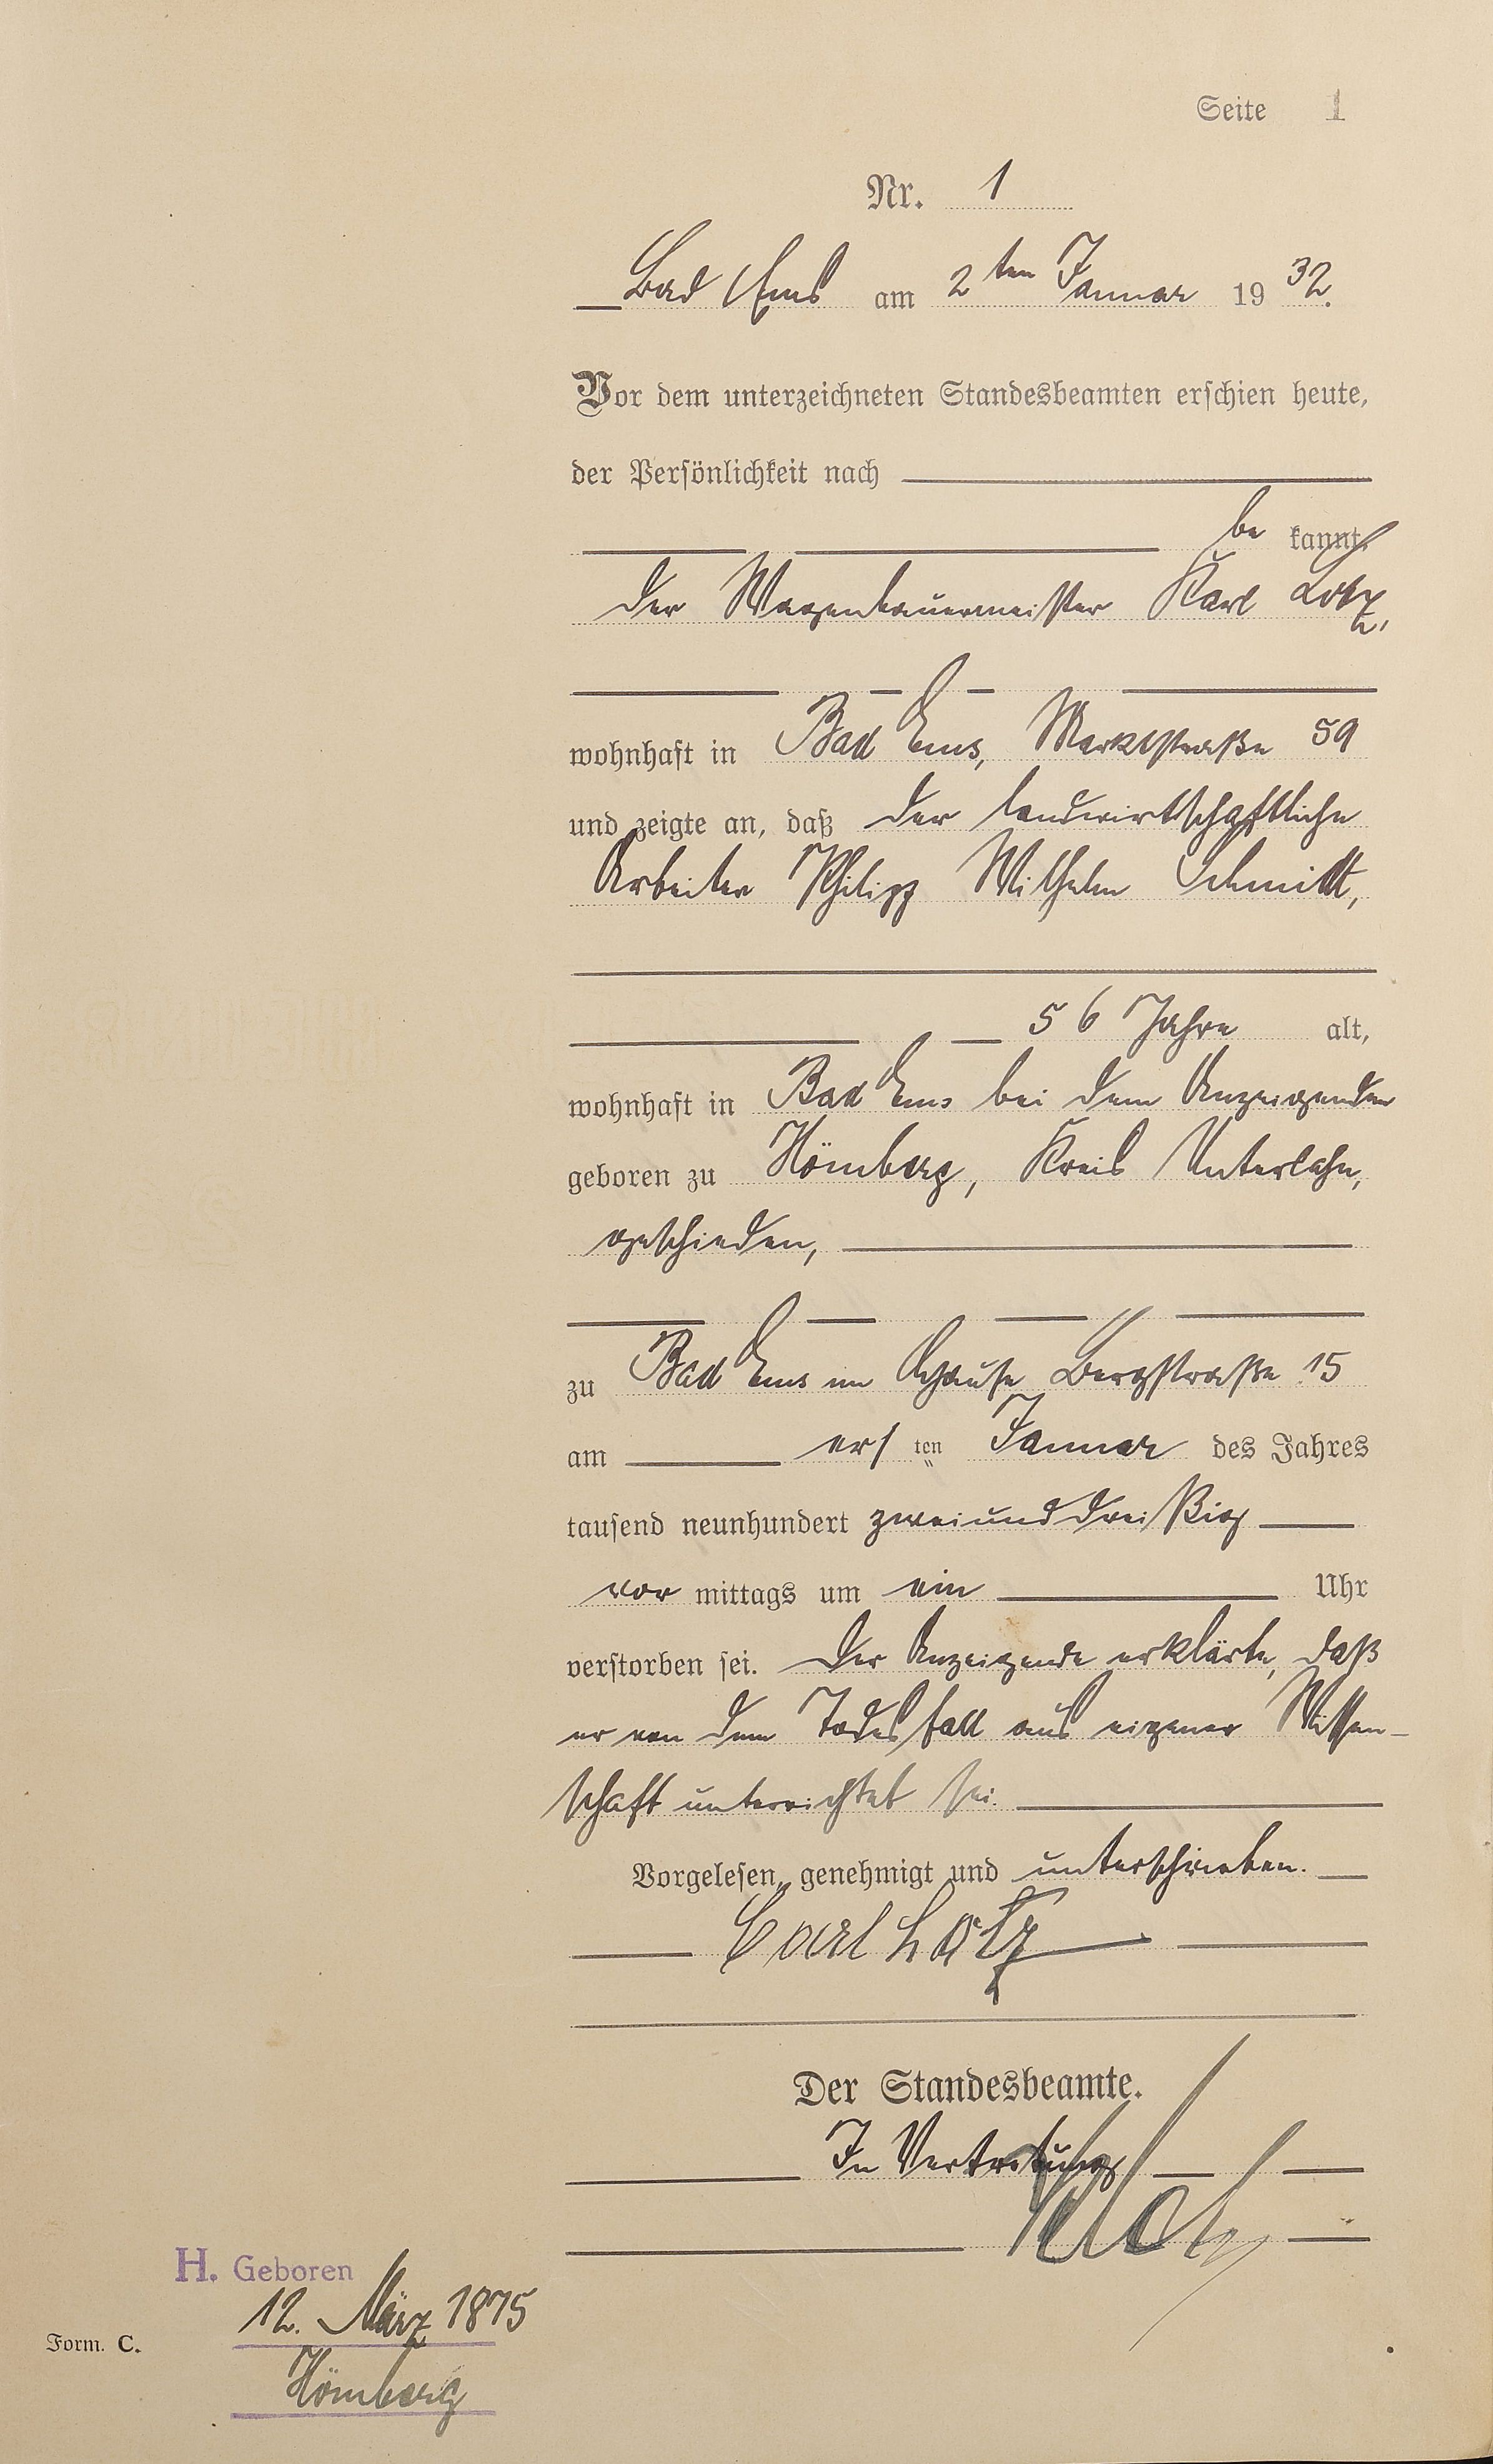 Seite 1
Nr. 1
Bad Ems am 2ten Januar 19 32.
Vor dem unterzeichneten Standesbeamten erschien heute,
der Persönlichkeit nach
be kannt,
der Wagenbauermeister Karl Lotz,
wohnhaft in Bad Ems, Marktstraße 59
und zeigte an, daß der landwirtschaftliche
Arbeiter Philipp Wilhelm Schmidt,
56 Jahre alt,
wohnhaft in Bad Ems bei dem Anzeigenden
geboren zu Hömberg, Kreis Unterlahn,
geschieden,
zu Bad Ems im Hause Bergstraße 15
am ersten Januar des Jahres
tausend neunhundert zweiunddreißig
vor mittags um ein Uhr
verstorben sei. Der Anzeigende erklärte, daß
er von dem Todesfall aus eigener Wissen-
schaft unterrichtet sei.
Vorgelesen, genehmigt und unterschrieben.
Carl Lotz
Der Standesbeamte.
In Vertretung
H. Geboren
12. März 1875
Form. C.
Hömberg